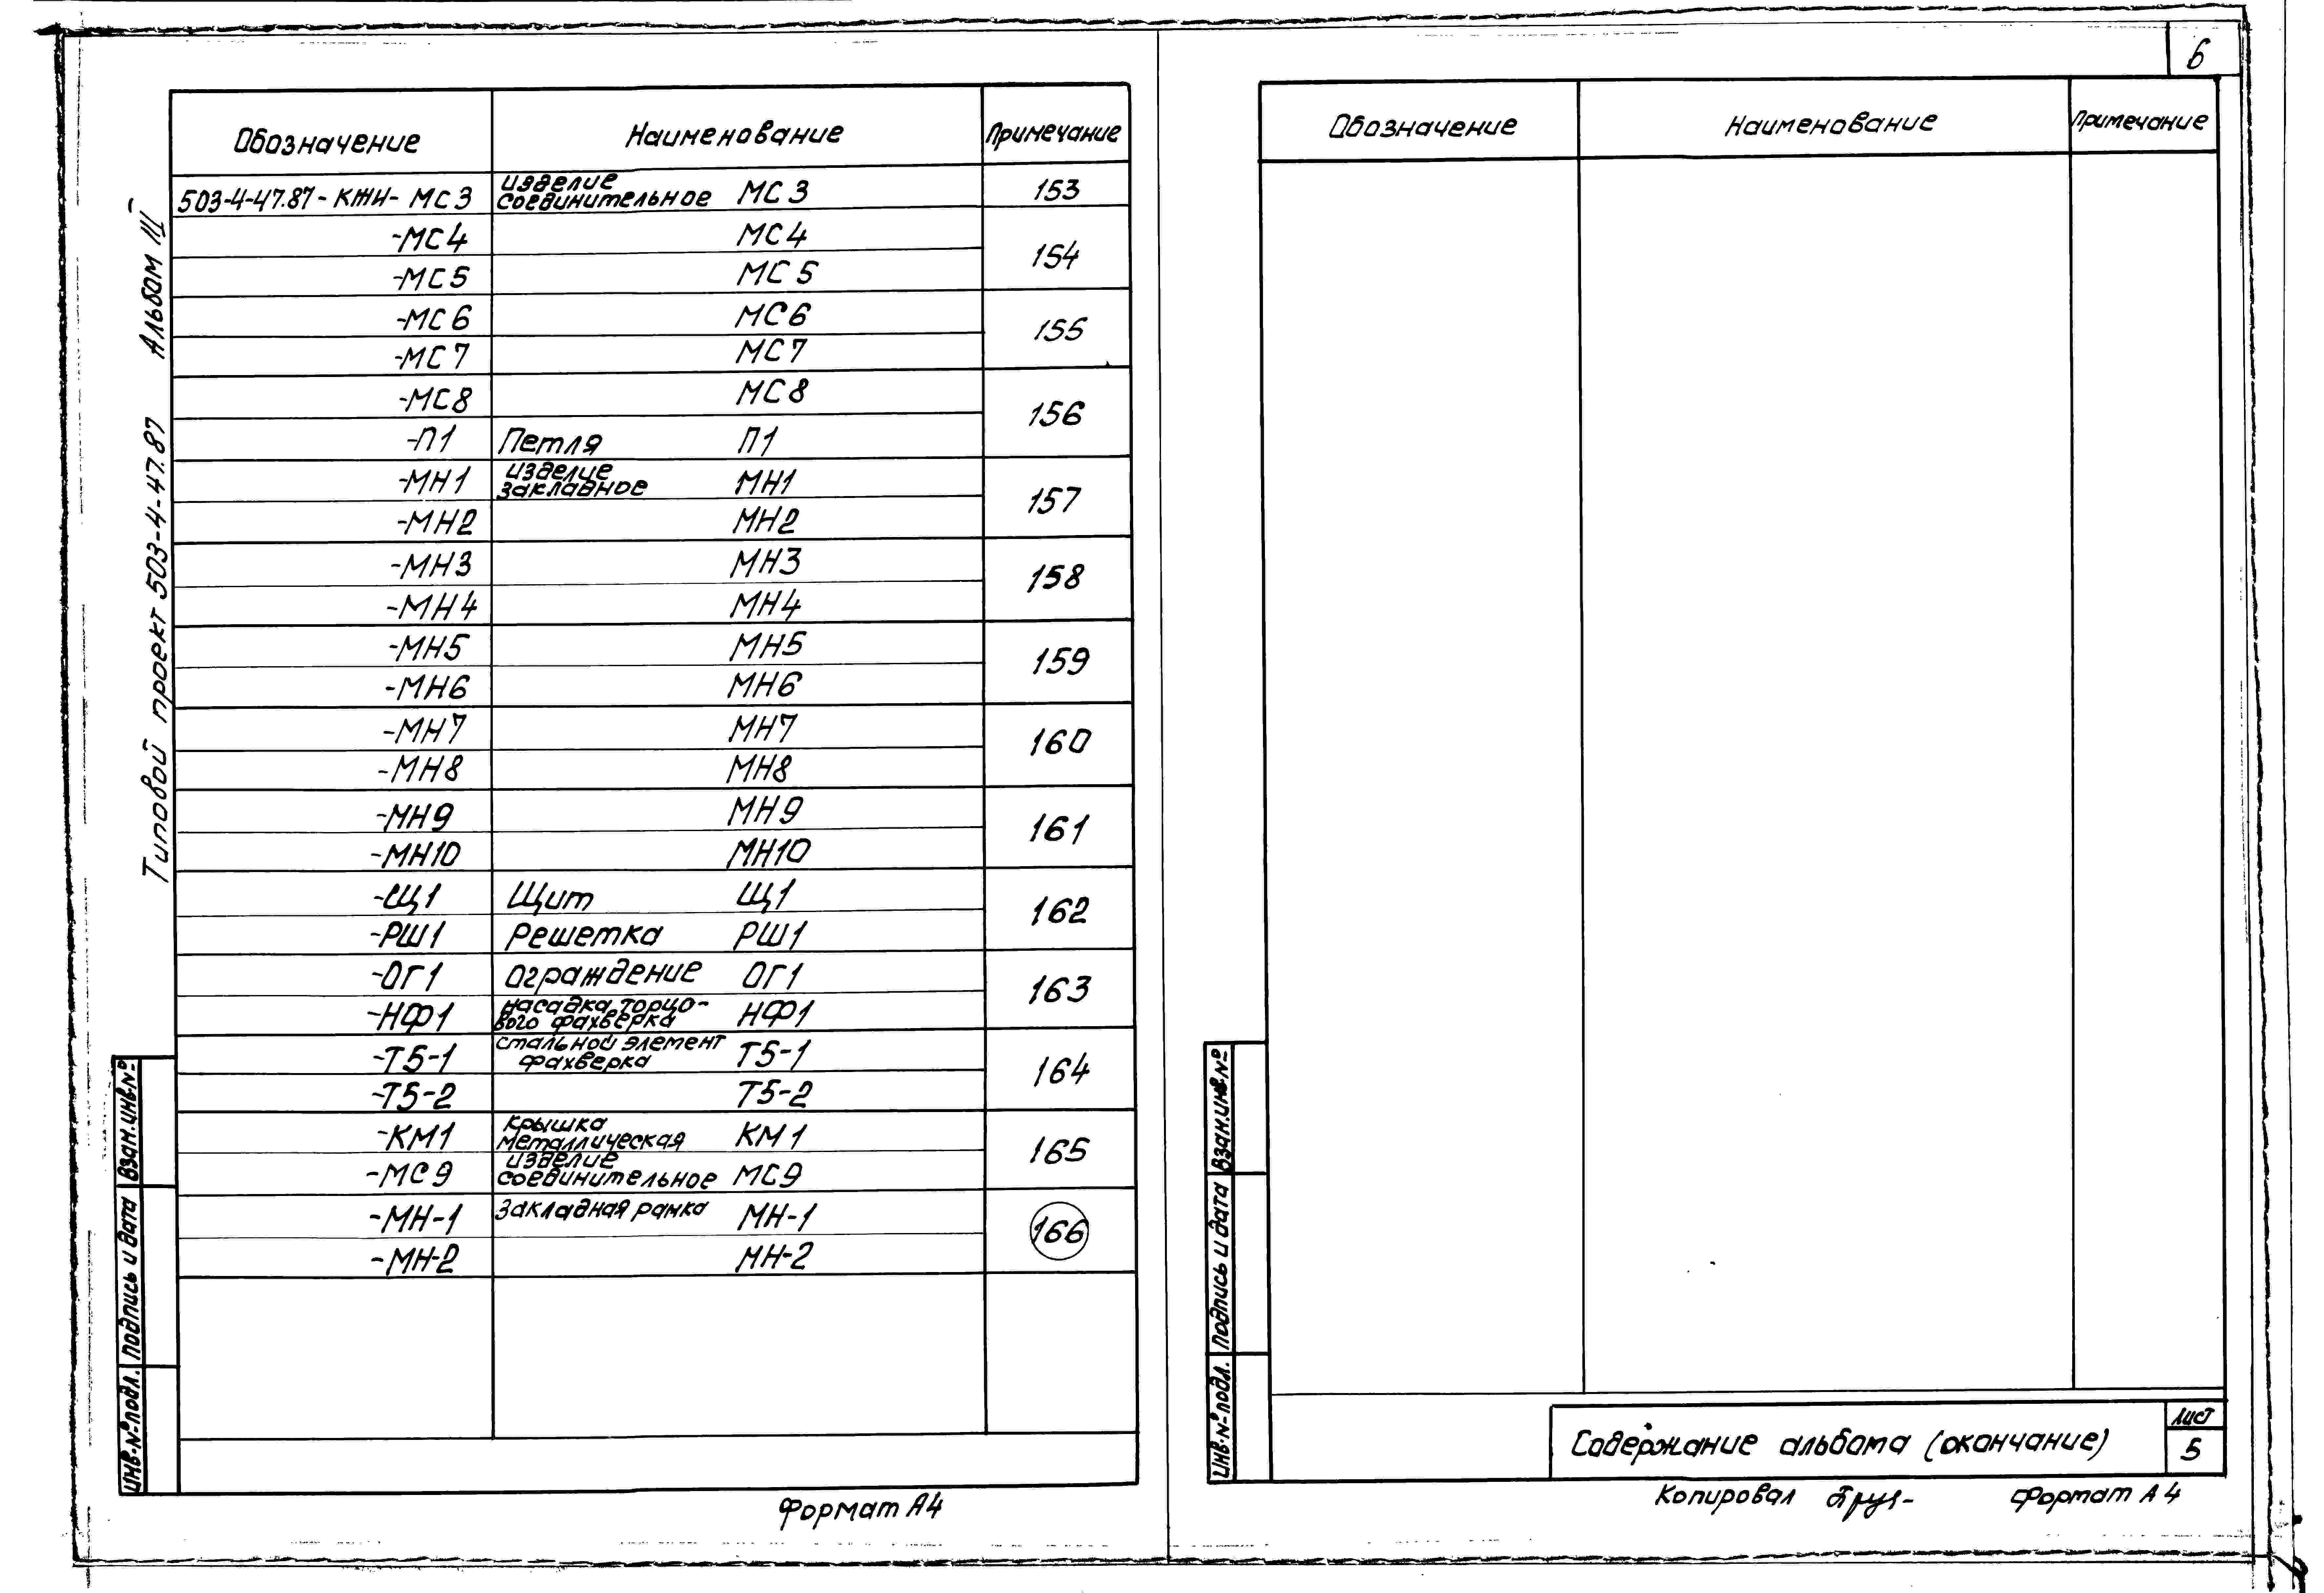 6
Типовой проект 503-4-47.87 Альбом III
Обозначение Наименование Примечание
503-4-47.87-КЖИ-МС3 изделие соединительное МС3 153
-МС4 МС4 154
-МС5 МС5
-МС6 МС6 155
-МС7 МС7
-МС8 МС8 156
-П1 Петля П1
-МН1 изделие закладное МН1 157
-МН2 МН2
-МН3 МН3 158
-МН4 МН4
-МН5 МН5 159
-МН6 МН6
-МН7 МН7 160
-МН8 МН8
-МН9 МН9 161
-МН10 МН10
-Щ1 Щит Щ1 162
-РШ1 Решетка РШ1
-ОГ1 Ограждение ОГ1 163
-НФ1 насадка торцо-
вого фахверка НФ1
-Т5-1 стальной элемент
фахверка Т5-1 164
-Т5-2 Т5-2
-КМ1 крышка
металлическая КМ1 165
-МС9 изделие
соединительное МС9
-МН-1 Закладная рамка МН-1 166
-МН-2 МН-2
Инв.№подл. Подпись и дата Взам.инв.№
Формат А4
Обозначение Наименование Примечание
Инв.№подл. Подпись и дата Взам.инв.№
Содержание альбома (окончание)
Лист
5
Копировал
Формат А4